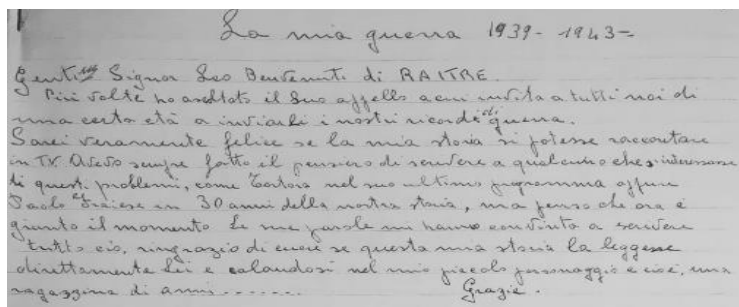 La mia guerra 1939 - 1943 -
Gent.mo Signor Leo Benvenuti di RAITRE.
Più volte ho ascoltato il Suo appello a cui invita a tutti noi di
una certa età a inviarLi i nostri ricordi di guerra.
Sarei veramente felice se la mia storia si potesse raccontare
in TV. Avevo sempre fatto il pensiero di scrivere a qualcuno che s'interessasse
di questi problemi, come Tortora nel suo ultimo programma oppure
Paolo Fraiese in 30 anni della nostra storia, ma penso che ora è
giunto il momento. Le sue parole mi hanno convinta a scrivere
tutto ciò, ringrazio di cuore se questa mia storia la leggesse
direttamente Lei e calandosi nel mio piccolo personaggio e cioè, una
ragazzina di anni ....... Grazie.